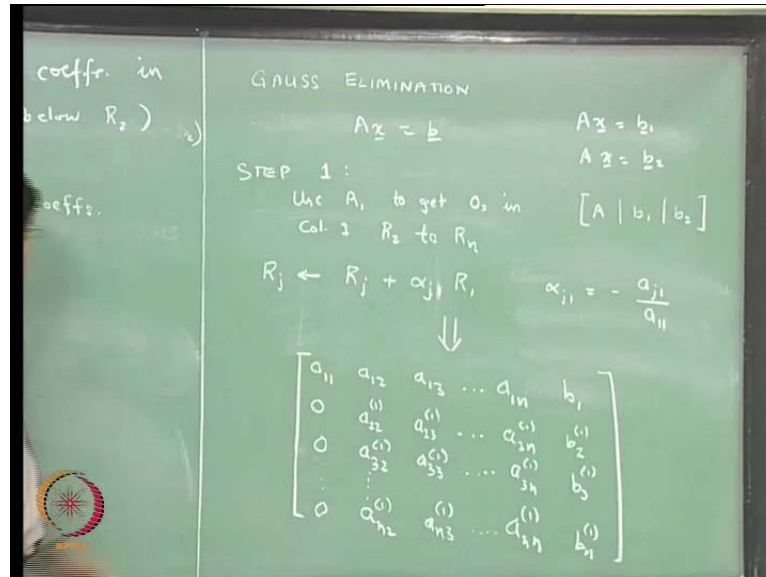 coeffs. in
below R₂)
coeffs.
GAUSS ELIMINATION
A x = b
A x = b₁
A x = b₂
STEP 1 :
Use A₁ to get 0s in
Col. 1 R₂ to Rₙ
[A | b₁ | b₂]
Rⱼ ← Rⱼ + αⱼ₁ R₁
αⱼ₁ = - aⱼ₁ / a₁₁
⇓
a₁₁ a₁₂ a₁₃ ... a₁ₙ b₁
0 a₂₂⁽¹⁾ a₂₃⁽¹⁾ ... a₂ₙ⁽¹⁾ b₂⁽¹⁾
0 a₃₂⁽¹⁾ a₃₃⁽¹⁾ .... a₃ₙ⁽¹⁾ b₃⁽¹⁾
⋮ ⋮
0 aₙ₂⁽¹⁾ aₙ₃⁽¹⁾ .... aₙₙ⁽¹⁾ bₙ⁽¹⁾
NPTEL